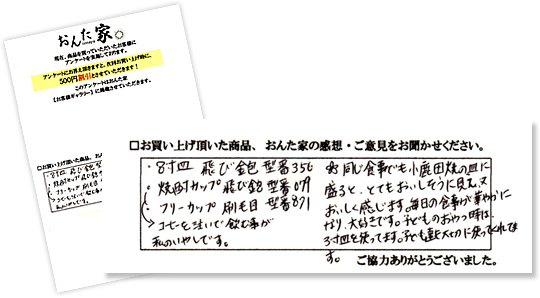 おんた家
現在、商品を買っていただいたお客様に
アンケートを実施しております。
アンケートにお答え頂きますと、次回お買い上げ時に、
500円割引とさせていただきます!
このアンケートはおんた家
【お客様ギャラリー】に掲載させていただきます。
□お買い上げ頂いた商品、おんた家の感想・ご意見をお聞かせください。
・8寸皿 飛び鉋 型番356
・焼酎カップ飛び鉋 型番079
・フリーカップ 刷毛目 型番871
→コーヒーを注いで飲む事が
私のいやしです。
同じ食事でも小鹿田焼の皿に
盛ると、とてもおいしそうに見え、又
おいしく感じます。毎日の食事が華やかに
なり、大好きです。子どものおやつ時は、
3寸皿を使ってます。子ども達も大切に使ってくれてま
す。
ご協力ありがとうございました。